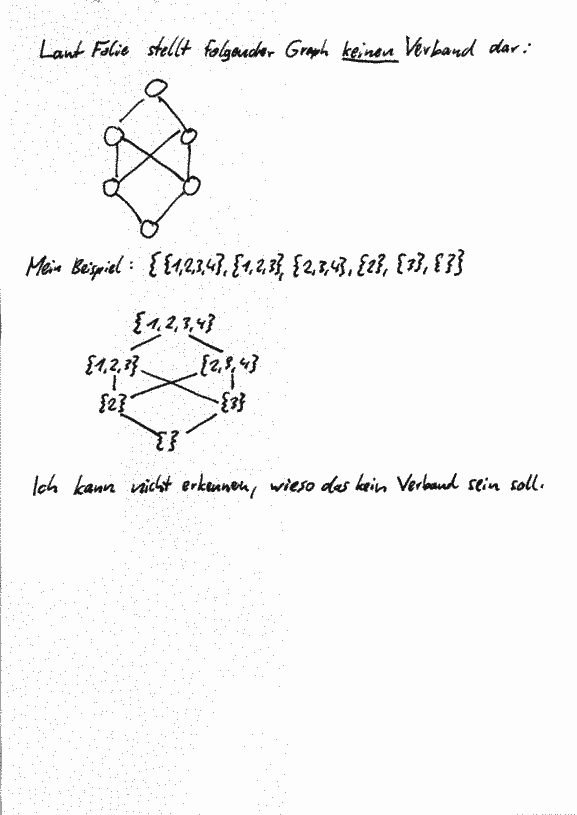 Laut Folie stellt folgender Graph keinen Verband dar:
Mein Beispiel: { {1,2,3,4}, {1,2,3}, {2,3,4}, {2}, {3}, {} }
{1,2,3,4}
{1,2,3} {2,3,4}
{2} {3}
{}
Ich kann nicht erkennen, wieso das kein Verband sein soll.